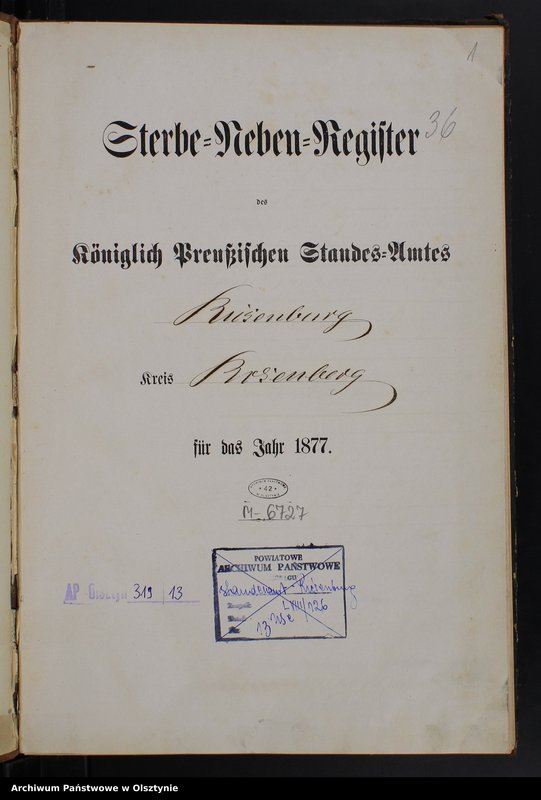 1
Sterbe=Neben=Register 36
des
Königlich Preußischen Standes=Amtes
Riesenburg
Kreis Rosenberg
für das Jahr 1877.
42
M-6727
POWIATOWE
ARCHIWUM PAŃSTWOWE
Standesamt - Riesenburg
LVIII/126
13
AP Olsztyn 319 / 13
Archiwum Państwowe w Olsztynie